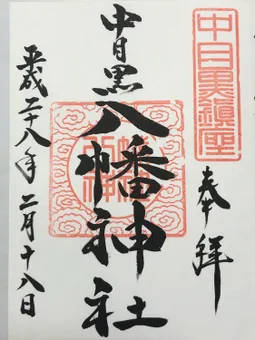 中目黒鎮座
奉拝
中目黒八幡神社
平成二十八年二月十八日